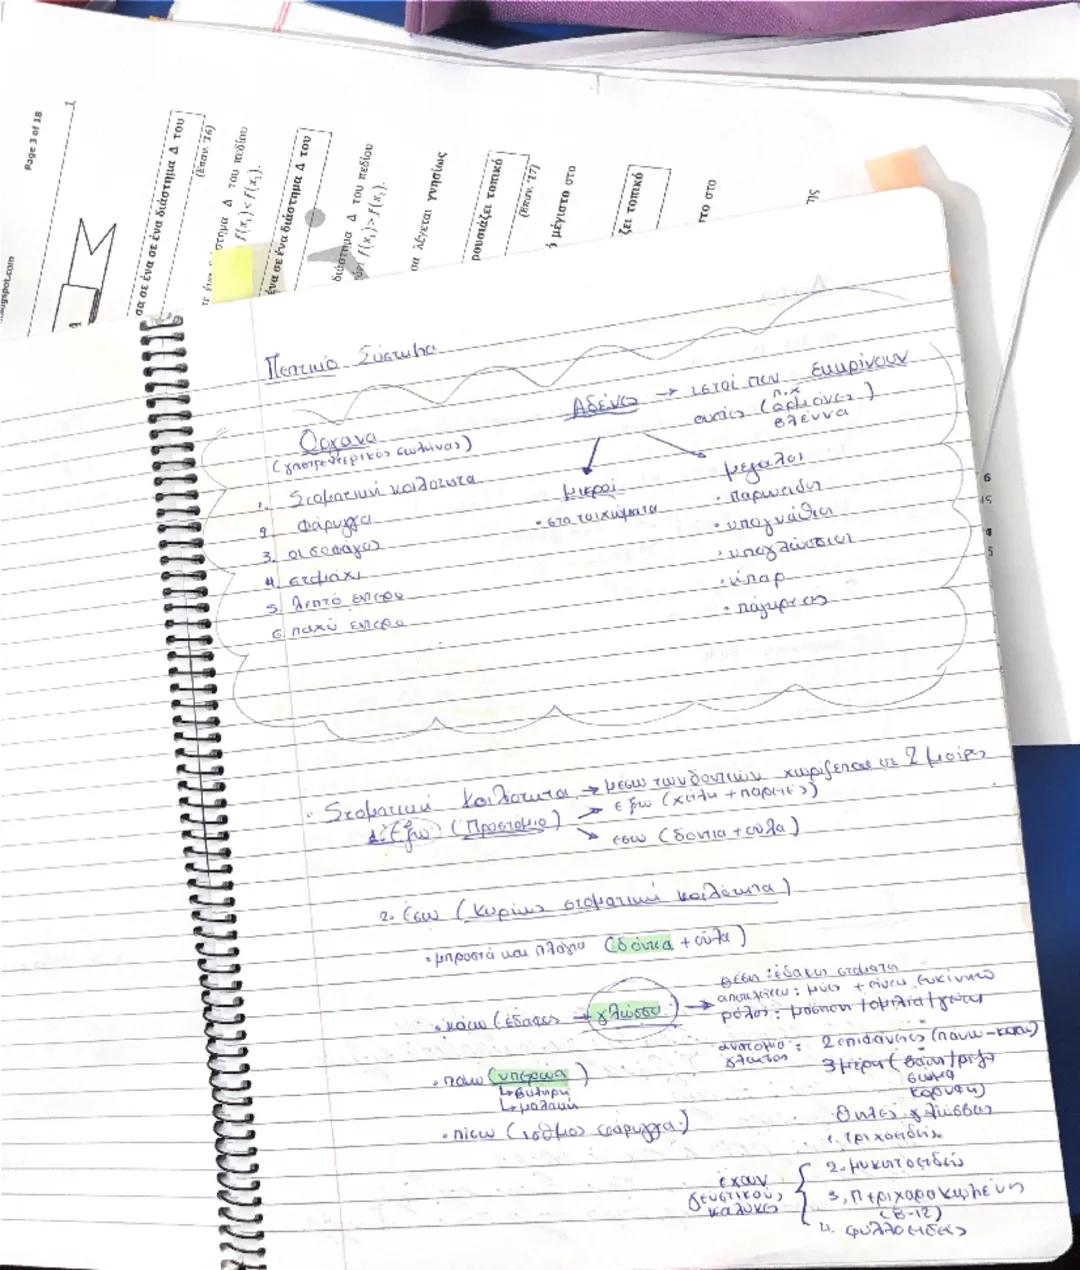 Page 3 of 18
σα σε ένα σε ένα διάστημα Δ του
(Επαν. '16)
Δ του πεδίου
f(x₁) < f(x₂).
ένα σε ένα διάστημα Δ του
διάστημα Δ του πεδίου
f(x₁) > f(x₂).
σα λέγεται γνησίως
ρουσιάζει τοπικό
(Επαν. '17)
μέγιστο στο
ζει τοπικό
το στο
Πεπτικό Σύστημα
Όργανα
(γαστρεντερικός σωλήνας)
1. Στοματική κοιλότητα
2 Φάρυγγα
3. οισοφάγος
4. στομάχι
5. λεπτό έντερο
6. παχύ έντερο
Αδένες → ιστοί που εκκρίνουν
ουσίες (π.χ ορμόνες)
βλέννα
μικροί
• στα τοιχώματα
μεγάλοι
• παρωτίδη
• υπογνάθιοι
• υπογλώσσιοι
• ήπαρ
• πάγκρεας
• Στοματική Κοιλότητα → μέσω των δοντιών χωρίζεται σε 2 μοίρες
1. (έξω) (Προστόμιο) → έξω (χείλη + παρειές)
→ έσω (δόντια + ούλα)
2. έσω (κυρίως στοματική κοιλότητα)
• μπροστά και πλάγια (δόντια + ούλα)
• κάτω (έδαφος → γλώσσα) →
θέση: έδαφος στόματος
αποτελείται: μύες + είναι ευκίνητο
ρόλος: μάσηση / ομιλία / γεύση
ανατομία γλώσσας: 2 επιφάνειες (πάνω - κάτω)
3 μέρη (βάση/ρίζα
σώμα
κορυφή)
• πάνω (υπερώα)
↳ σκληρή
↳ μαλακή
• πίσω (ισθμός φάρυγγα)
Θηλές γλώσσας
1. τριχοειδής
2. μυκητοειδείς
3. περιχαρακωμένη
(8-12)
4. φυλλοειδείς
έχουν
γευστικούς
κάλυκες